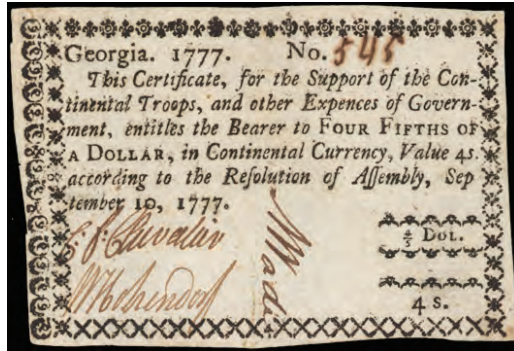 Georgia. 1777. No. 545
This Certificate, for the Support of the Con-
tinental Troops, and other Expences of Govern-
ment, entitles the Bearer to FOUR FIFTHS OF
A DOLLAR, in Continental Currency, Value 4s.
according to the Resolution of Assembly, Sep
tember 10, 1777.
4/5 DOL.
4 S.